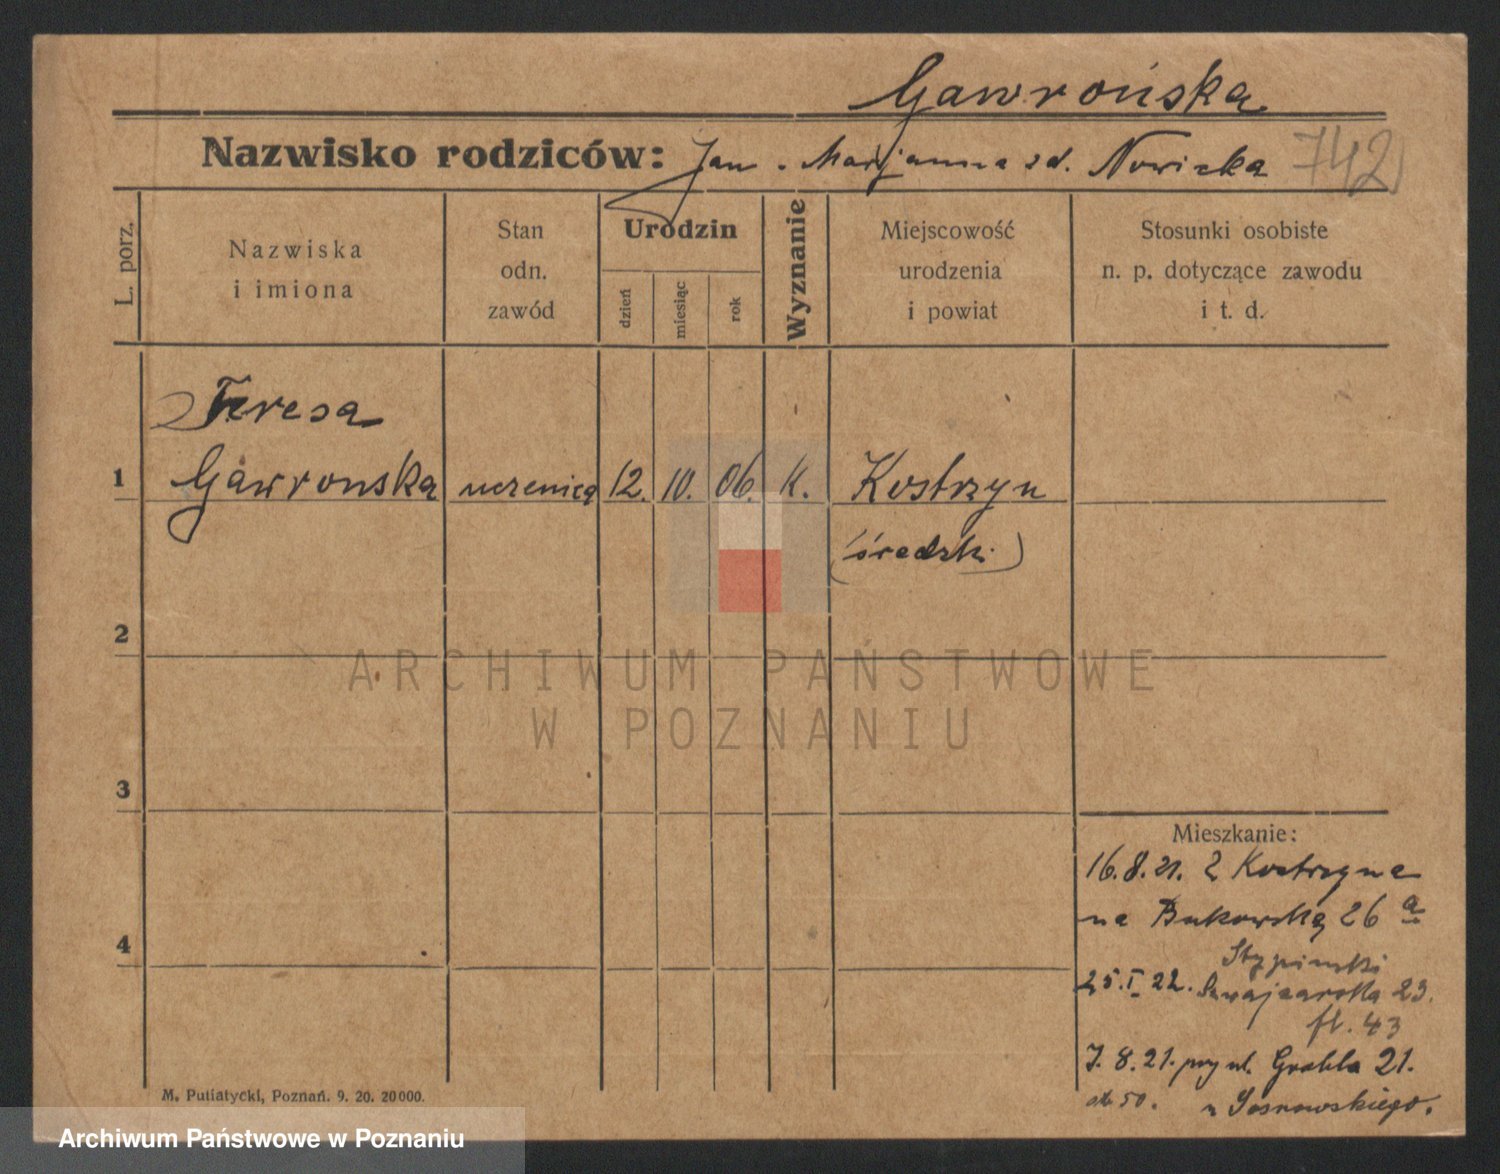 Gawrońska
Nazwisko rodziców: Jan . Marjanna zd. Nowicka 742
L. porz.
Nazwiska
i imiona
Stan
odn.
zawód
Urodzin
dzień
miesiąc
rok
Wyznanie
Miejscowość
urodzenia
i powiat
Stosunki osobiste
n. p. dotyczące zawodu
i t. d.
Teresa
1 Gawronska uczenica 12. 10. 06. K. Kostrzyn
(średzki)
2
ARCHIWUM PAŃSTWOWE
W POZNANIU
3
Mieszkanie:
16.8.21. z Kostrzyna
na Bukowską 26 a
4
Stypinski
25.I.22. Szwajcarska 23.
fl. 43
7.8.21. przy ul. Grobla 21.
u Sosnowskiego.
M. Putiatycki, Poznań. 9. 20. 20000.
Archiwum Państwowe w Poznaniu